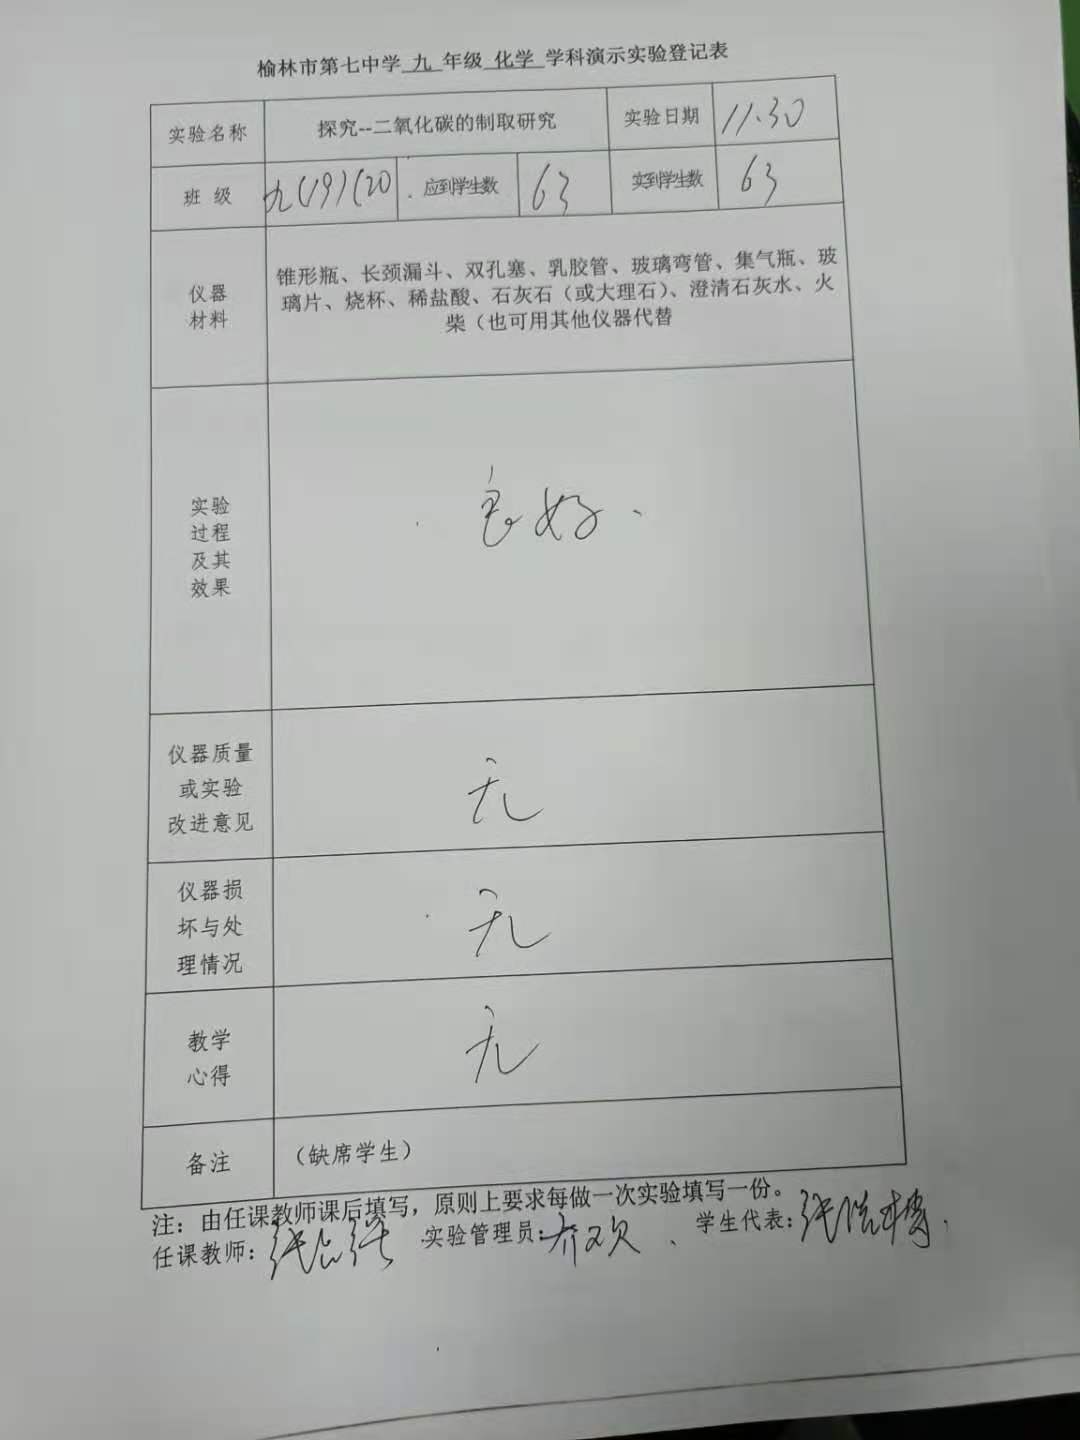 榆林市第七中学 九 年级 化学 学科演示实验登记表
实验名称 探究--二氧化碳的制取研究 实验日期 11.30
班 级 九(19)(20 应到学生数 63 实到学生数 63
锥形瓶、长颈漏斗、双孔塞、乳胶管、玻璃弯管、集气瓶、玻
仪器 璃片、烧杯、稀盐酸、石灰石（或大理石）、澄清石灰水、火
材料 柴（也可用其他仪器代替
实验
过程 良好.
及其
效果
仪器质量
或实验 无
改进意见
仪器损
坏与处 无
理情况
教学 无
心得
备注 （缺席学生）
注：由任课教师课后填写，原则上要求每做一次实验填写一份。
任课教师： 实验管理员：乔欢 学生代表：张